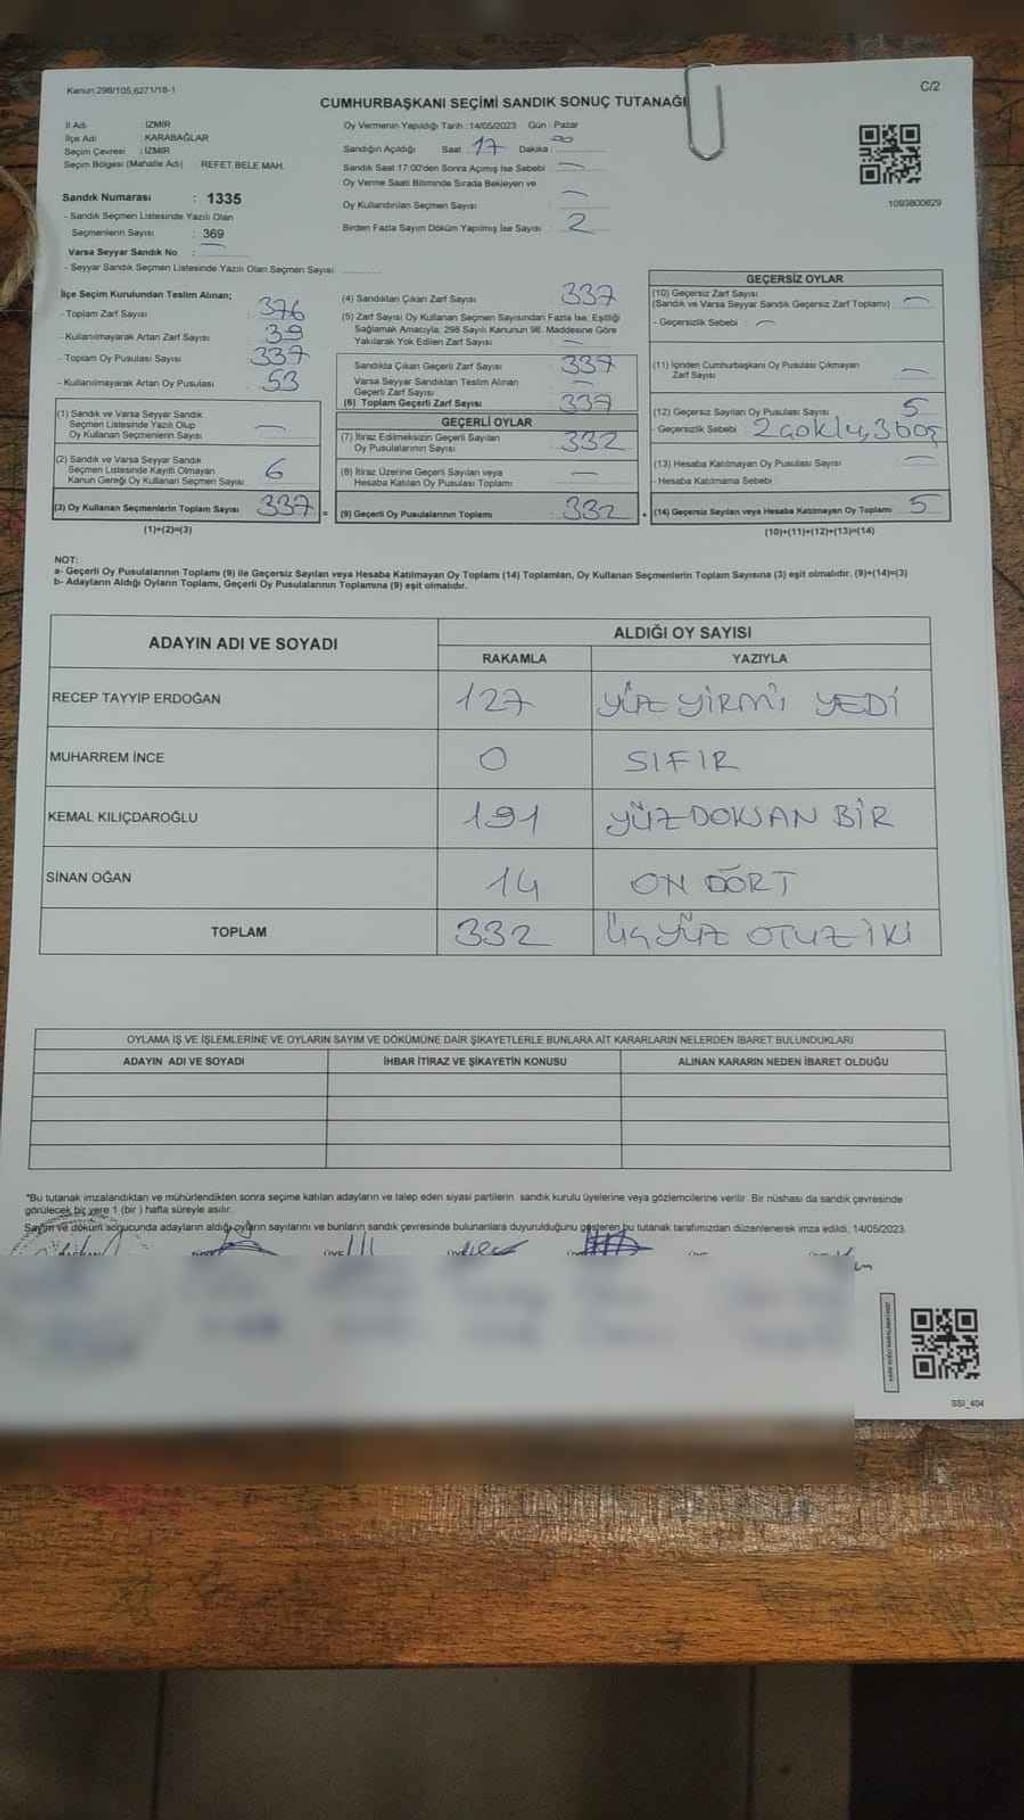 Kanun:298/105,6271/18-1
C/2
CUMHURBAŞKANI SEÇİMİ SANDIK SONUÇ TUTANAĞI
İl Adı : İZMİR
İlçe Adı : KARABAĞLAR
Seçim Çevresi : İZMİR
Seçim Bölgesi (Mahalle Adı) REFET BELE MAH.
Oy Vermenin Yapıldığı Tarih :14/05/2023 Gün : Pazar
Sandığın Açıldığı Saat : 17 Dakika :
Sandık Saat 17:00'den Sonra Açılmış İse Sebebi :
Oy Verme Saati Bitiminde Sırada Bekleyen ve
Oy Kullandırılan Seçmen Sayısı :
Birden Fazla Sayım Döküm Yapılmış İse Sayısı : 2
1093800629
Sandık Numarası : 1335
- Sandık Seçmen Listesinde Yazılı Olan
Seçmenlerin Sayısı : 369
Varsa Seyyar Sandık No :
- Seyyar Sandık Seçmen Listesinde Yazılı Olan Seçmen Sayısı
İlçe Seçim Kurulundan Teslim Alınan;
- Toplam Zarf Sayısı : 376
- Kullanılmayarak Artan Zarf Sayısı : 39
- Toplam Oy Pusulası Sayısı : 337
- Kullanılmayarak Artan Oy Pusulası : 53
(1) Sandık ve Varsa Seyyar Sandık
Seçmen Listesinde Yazılı Olup
Oy Kullanan Seçmenlerin Sayısı :
(2) Sandık ve Varsa Seyyar Sandık
Seçmen Listesinde Kayıtlı Olmayan
Kanun Gereği Oy Kullanan Seçmen Sayısı 6
(3) Oy Kullanan Seçmenlerin Toplam Sayısı 337 =
(1)+(2)=(3)
(4) Sandıktan Çıkan Zarf Sayısı : 337
(5) Zarf Sayısı Oy Kullanan Seçmen Sayısından Fazla İse, Eşitliği
Sağlamak Amacıyla, 298 Sayılı Kanunun 98. Maddesine Göre
Yakılarak Yok Edilen Zarf Sayısı
Sandıkta Çıkan Geçerli Zarf Sayısı : 337
Varsa Seyyar Sandıktan Teslim Alınan
Geçerli Zarf Sayısı
(6) Toplam Geçerli Zarf Sayısı : 337
GEÇERLİ OYLAR
(7) İtiraz Edilmeksizin Geçerli Sayılan
Oy Pusulalarının Sayısı : 332
(8) İtiraz Üzerine Geçerli Sayılan veya
Hesaba Katılan Oy Pusulası Toplamı :
(9) Geçerli Oy Pusulalarının Toplamı : 332 +
GEÇERSİZ OYLAR
(10) Geçersiz Zarf Sayısı
(Sandık ve Varsa Seyyar Sandık Geçersiz Zarf Toplamı) :
- Geçersizlik Sebebi :
(11) İçinden Cumhurbaşkanı Oy Pusulası Çıkmayan
Zarf Sayısı
(12) Geçersiz Sayılan Oy Pusulası Sayısı : 5
Geçersizlik Sebebi : 2 çoklu, 3 boş
(13) Hesaba Katılmayan Oy Pusulası Sayısı :
- Hesaba Katılmama Sebebi
(14) Geçersiz Sayılan veya Hesaba Katılmayan Oy Toplamı : 5
(10)+(11)+(12)+(13)=(14)
NOT:
a- Geçerli Oy Pusulalarının Toplamı (9) ile Geçersiz Sayılan veya Hesaba Katılmayan Oy Toplamı (14) Toplamları, Oy Kullanan Seçmenlerin Toplam Sayısına (3) eşit olmalıdır. (9)+(14)=(3)
b- Adayların Aldığı Oyların Toplamı, Geçerli Oy Pusulalarının Toplamına (9) eşit olmalıdır.
ADAYIN ADI VE SOYADI
ALDIĞI OY SAYISI
RAKAMLA YAZIYLA
RECEP TAYYİP ERDOĞAN 127 YÜZ YİRMİ YEDİ
MUHARREM İNCE 0 SIFIR
KEMAL KILIÇDAROĞLU 191 YÜZ DOKSAN BİR
SİNAN OĞAN 14 ON DÖRT
TOPLAM 332 ÜÇ YÜZ OTUZ İKİ
OYLAMA İŞ VE İŞLEMLERİNE VE OYLARIN SAYIM VE DÖKÜMÜNE DAİR ŞİKAYETLERLE BUNLARA AİT KARARLARIN NELERDEN İBARET BULUNDUKLARI
ADAYIN ADI VE SOYADI İHBAR İTİRAZ VE ŞİKAYETİN KONUSU ALINAN KARARIN NEDEN İBARET OLDUĞU
*Bu tutanak imzalandıktan ve mühürlendikten sonra seçime katılan adayların ve talep eden siyasi partilerin sandık kurulu üyelerine veya gözlemcilerine verilir. Bir nüshası da sandık çevresinde
görülecek bir yere 1 (bir ) hafta süreyle asılır.
Sayım ve döküm sonucunda adayların aldığı oyların sayılarını ve bunların sandık çevresinde bulunanlara duyurulduğunu gösteren bu tutanak tarafımızdan düzenlenerek imza edildi. 14/05/2023
SSI_404